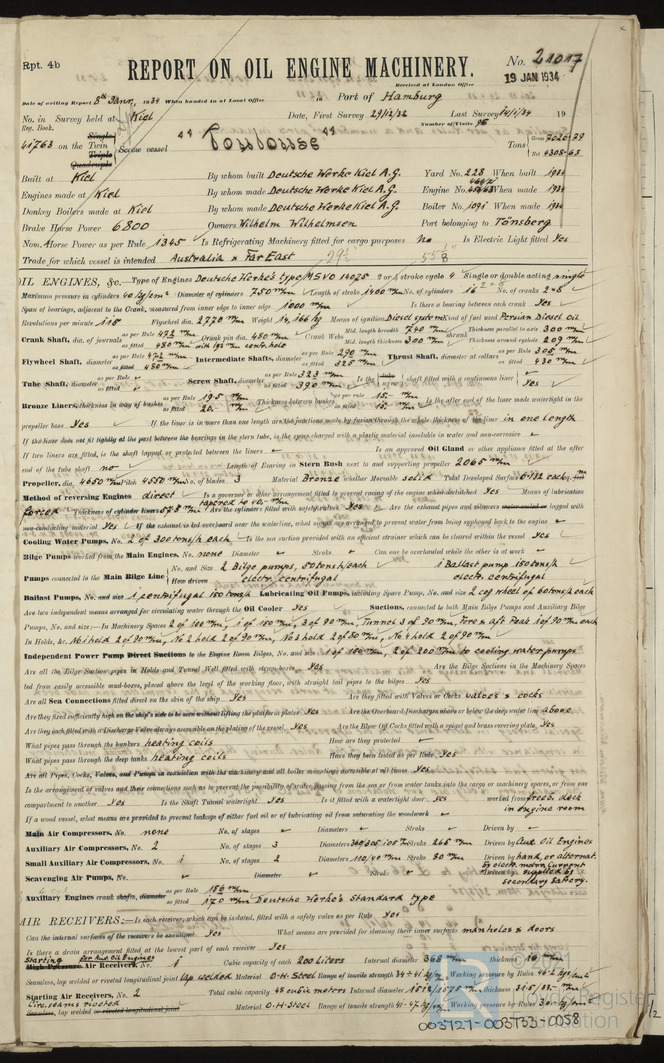 Rpt. 4b
REPORT ON OIL ENGINE MACHINERY.
No. 21017
Received at London Office 19 JAN 1934
Date of writing Report 5th Janr. 1934 When handed in at Local Office Port of Hamburg
No. in Survey held at Kiel Date, First Survey 29/12/32 Last Survey 19
Reg. Book. Number of Visits
41763 on the Single Twin Triple Quadruple Screw vessel "Toulouse" Tons Gross 7026.29 Net 4308.63
Built at Kiel By whom built Deutsche Werke Kiel A.G. Yard No. 228 When built 1934
Engines made at Kiel By whom made Deutsche Werke Kiel A.G. Engine No. When made 1934
Donkey Boilers made at Kiel By whom made Deutsche Werke Kiel A.G. Boiler No. 1091 When made 1934
Brake Horse Power 6800 Owners Wilhelm Wilhelmsen Port belonging to Tönsberg
Nom. Horse Power as per Rule 1345 Is Refrigerating Machinery fitted for cargo purposes No Is Electric Light fitted Yes
Trade for which vessel is intended Australia & Far East
OIL ENGINES, &c.—Type of Engines Deutsche Werke's type 2 or 4 stroke cycle 4 Single or double acting single
Maximum pressure in cylinders 40 kg/cm² Diameter of cylinders 750 m/m Length of stroke 1400 m/m No. of cylinders 16 No. of cranks 2×8
Span of bearings, adjacent to the Crank, measured from inner edge to inner edge 1000 m/m Is there a bearing between each crank Yes
Revolutions per minute 115 Flywheel dia. 2770 m/m Weight Means of ignition Diesel system Kind of fuel used Persian Diesel Oil
Crank Shaft, dia. of journals as per Rule 472 m/m as fitted 480 m/m Crank pin dia. 480 m/m Crank Webs Mid. length breadth 740 m/m Mid. length thickness 300 m/m shrunk Thickness parallel to axis 300 m/m Thickness around eyehole 209 m/m
Flywheel Shaft, diameter as per Rule 472 m/m as fitted 480 m/m Intermediate Shafts, diameter as per Rule 290 m/m as fitted 325 m/m Thrust Shaft, diameter at collars as per Rule 305 m/m as fitted 430 m/m
Tube Shaft, diameter as per Rule as fitted Screw Shaft, diameter as per Rule 323 m/m as fitted 390 m/m Is the shaft fitted with a continuous liner Yes
Bronze Liners, thickness in way of bushes as per Rule 19.5 m/m as fitted 20. m/m Thickness between bushes as per Rule 15.- m/m as fitted 15.- m/m Is the after end of the liner made watertight in the
propeller boss Yes If the liner is in more than one length are the junctions made by fusion through the whole thickness of the liner in one length
If the liner does not fit tightly at the part between the bearings in the stern tube, is the space charged with a plastic material insoluble in water and non-corrosive
If two liners are fitted, is the shaft lapped or protected between the liners Is an approved Oil Gland or other appliance fitted at the after
end of the tube shaft no Length of Bearing in Stern Bush next to and supporting propeller 2065 m/m
Propeller, dia. 4650 m/m Pitch 4550 m/m No. of blades 3 Material Bronze whether Moveable solid Total Developed Surface each
Method of reversing Engines direct Is a governor or other arrangement fitted to prevent racing of the engine when declutched Yes Means of lubrication
forced Thickness of cylinder liners Are the cylinders fitted with safety valves Yes Are the exhaust pipes and silencers water cooled or lagged with
non-conducting material Yes If the exhaust is led overboard near the waterline, what means are arranged to prevent water from being syphoned back to the engine
Cooling Water Pumps, No. 2 of 300 tons/h each Is the sea suction provided with an efficient strainer which can be cleared within the vessel Yes
Bilge Pumps worked from the Main Engines, No. none Diameter Stroke Can one be overhauled while the other is at work
Pumps connected to the Main Bilge Line No. and Size 2 Bilge pumps, 50 tons/h each 1 Ballast pump 150 tons/h
How driven electr. centrifugal electr. centrifugal
Ballast Pumps, No. and size 1 centrifugal 150 tons/h Lubricating Oil Pumps, including Spare Pump, No. and size 2 cog wheel of 60 tons/h each
Are two independent means arranged for circulating water through the Oil Cooler Yes Suctions, connected to both Main Bilge Pumps and Auxiliary Bilge
Pumps, No. and size:—In Machinery Spaces 2 of 100 m/m, 1 of 150 m/m, 3 of 90 m/m, Tunnel 3 of 90 m/m, Fore & aft Peak 1 of 90 m/m each
In Holds, &c. No 1 hold 2 of 90 m/m, No 2 hold 2 of 90 m/m, No 3 hold 2 of 80 m/m, No 4 hold 2 of 90 m/m
Independent Power Pump Direct Suctions to the Engine Room Bilges, No. and size 1 of 150 m/m, 2 of 200 m/m to cooling water pumps
Are all the Bilge Suction pipes in Holds and Tunnel Well fitted with strum-boxes Yes Are the Bilge Suctions in the Machinery Spaces
led from easily accessible mud-boxes, placed above the level of the working floor, with straight tail pipes to the bilges Yes
Are all Sea Connections fitted direct on the skin of the ship Yes Are they fitted with Valves or Cocks valves & cocks
Are they fixed sufficiently high on the ship's side to be seen without lifting the platform plates Yes Are the Overboard Discharges above or below the deep water line above
Are they each fitted with a Discharge Valve always accessible on the plating of the vessel Yes Are the Blow Off Cocks fitted with a spigot and brass covering plate Yes
What pipes pass through the bunkers heating coils How are they protected
What pipes pass through the deep tanks heating coils Have they been tested as per Rule Yes
Are all Pipes, Cocks, Valves, and Pumps in connection with the machinery and all boiler mountings accessible at all times Yes
Is the arrangement of valves and their connections such as to prevent the possibility of water passing from the sea or from water tanks into the cargo or machinery spaces, or from one
compartment to another Yes Is the Shaft Tunnel watertight Yes Is it fitted with a watertight door yes worked from freeb. deck in engine room
If a wood vessel, what means are provided to prevent leakage of either fuel oil or of lubricating oil from saturating the woodwork
Main Air Compressors, No. none No. of stages Diameters Stroke Driven by
Auxiliary Air Compressors, No. 2 No. of stages 3 Diameters Stroke 265 m/m Driven by Aux Oil Engines
Small Auxiliary Air Compressors, No. 1 No. of stages 2 Diameters 110/40 m/m Stroke 80 m/m Driven by hand, or alternat. by electr. motor current
Scavenging Air Pumps, No. Diameter Stroke Driven by supplied by secondary battery.
Auxiliary Engines crank shafts, diameter as per Rule 156 m/m as fitted 170 m/m Deutsche Werke's Standard type
AIR RECEIVERS:—Is each receiver, which can be isolated, fitted with a safety valve as per Rule Yes
Can the internal surfaces of the receivers be examined Yes What means are provided for cleaning their inner surfaces manholes & doors
Is there a drain arrangement fitted at the lowest part of each receiver Yes
Starting for Aux Oil Engines
High Pressure Air Receivers, No. 1 Cubic capacity of each 200 liters Internal diameter 368 m/m thickness 16 m/m
Seamless, lap welded or riveted longitudinal joint lap welded Material O-H-Steel Range of tensile strength 34-41 kg/m/m Working pressure by Rules 46.2 kgs/cm²
Starting Air Receivers, No. 2 Total cubic capacity 45 cubic meters Internal diameter thickness
Circ. seams riveted
Seamless, lap welded or riveted longitudinal joint Material O-H-Steel Range of tensile strength 41-47 kg/m/m Working pressure by Rules
© 2021
LR
Lloyd's Register
Foundation
003727-003733-0058